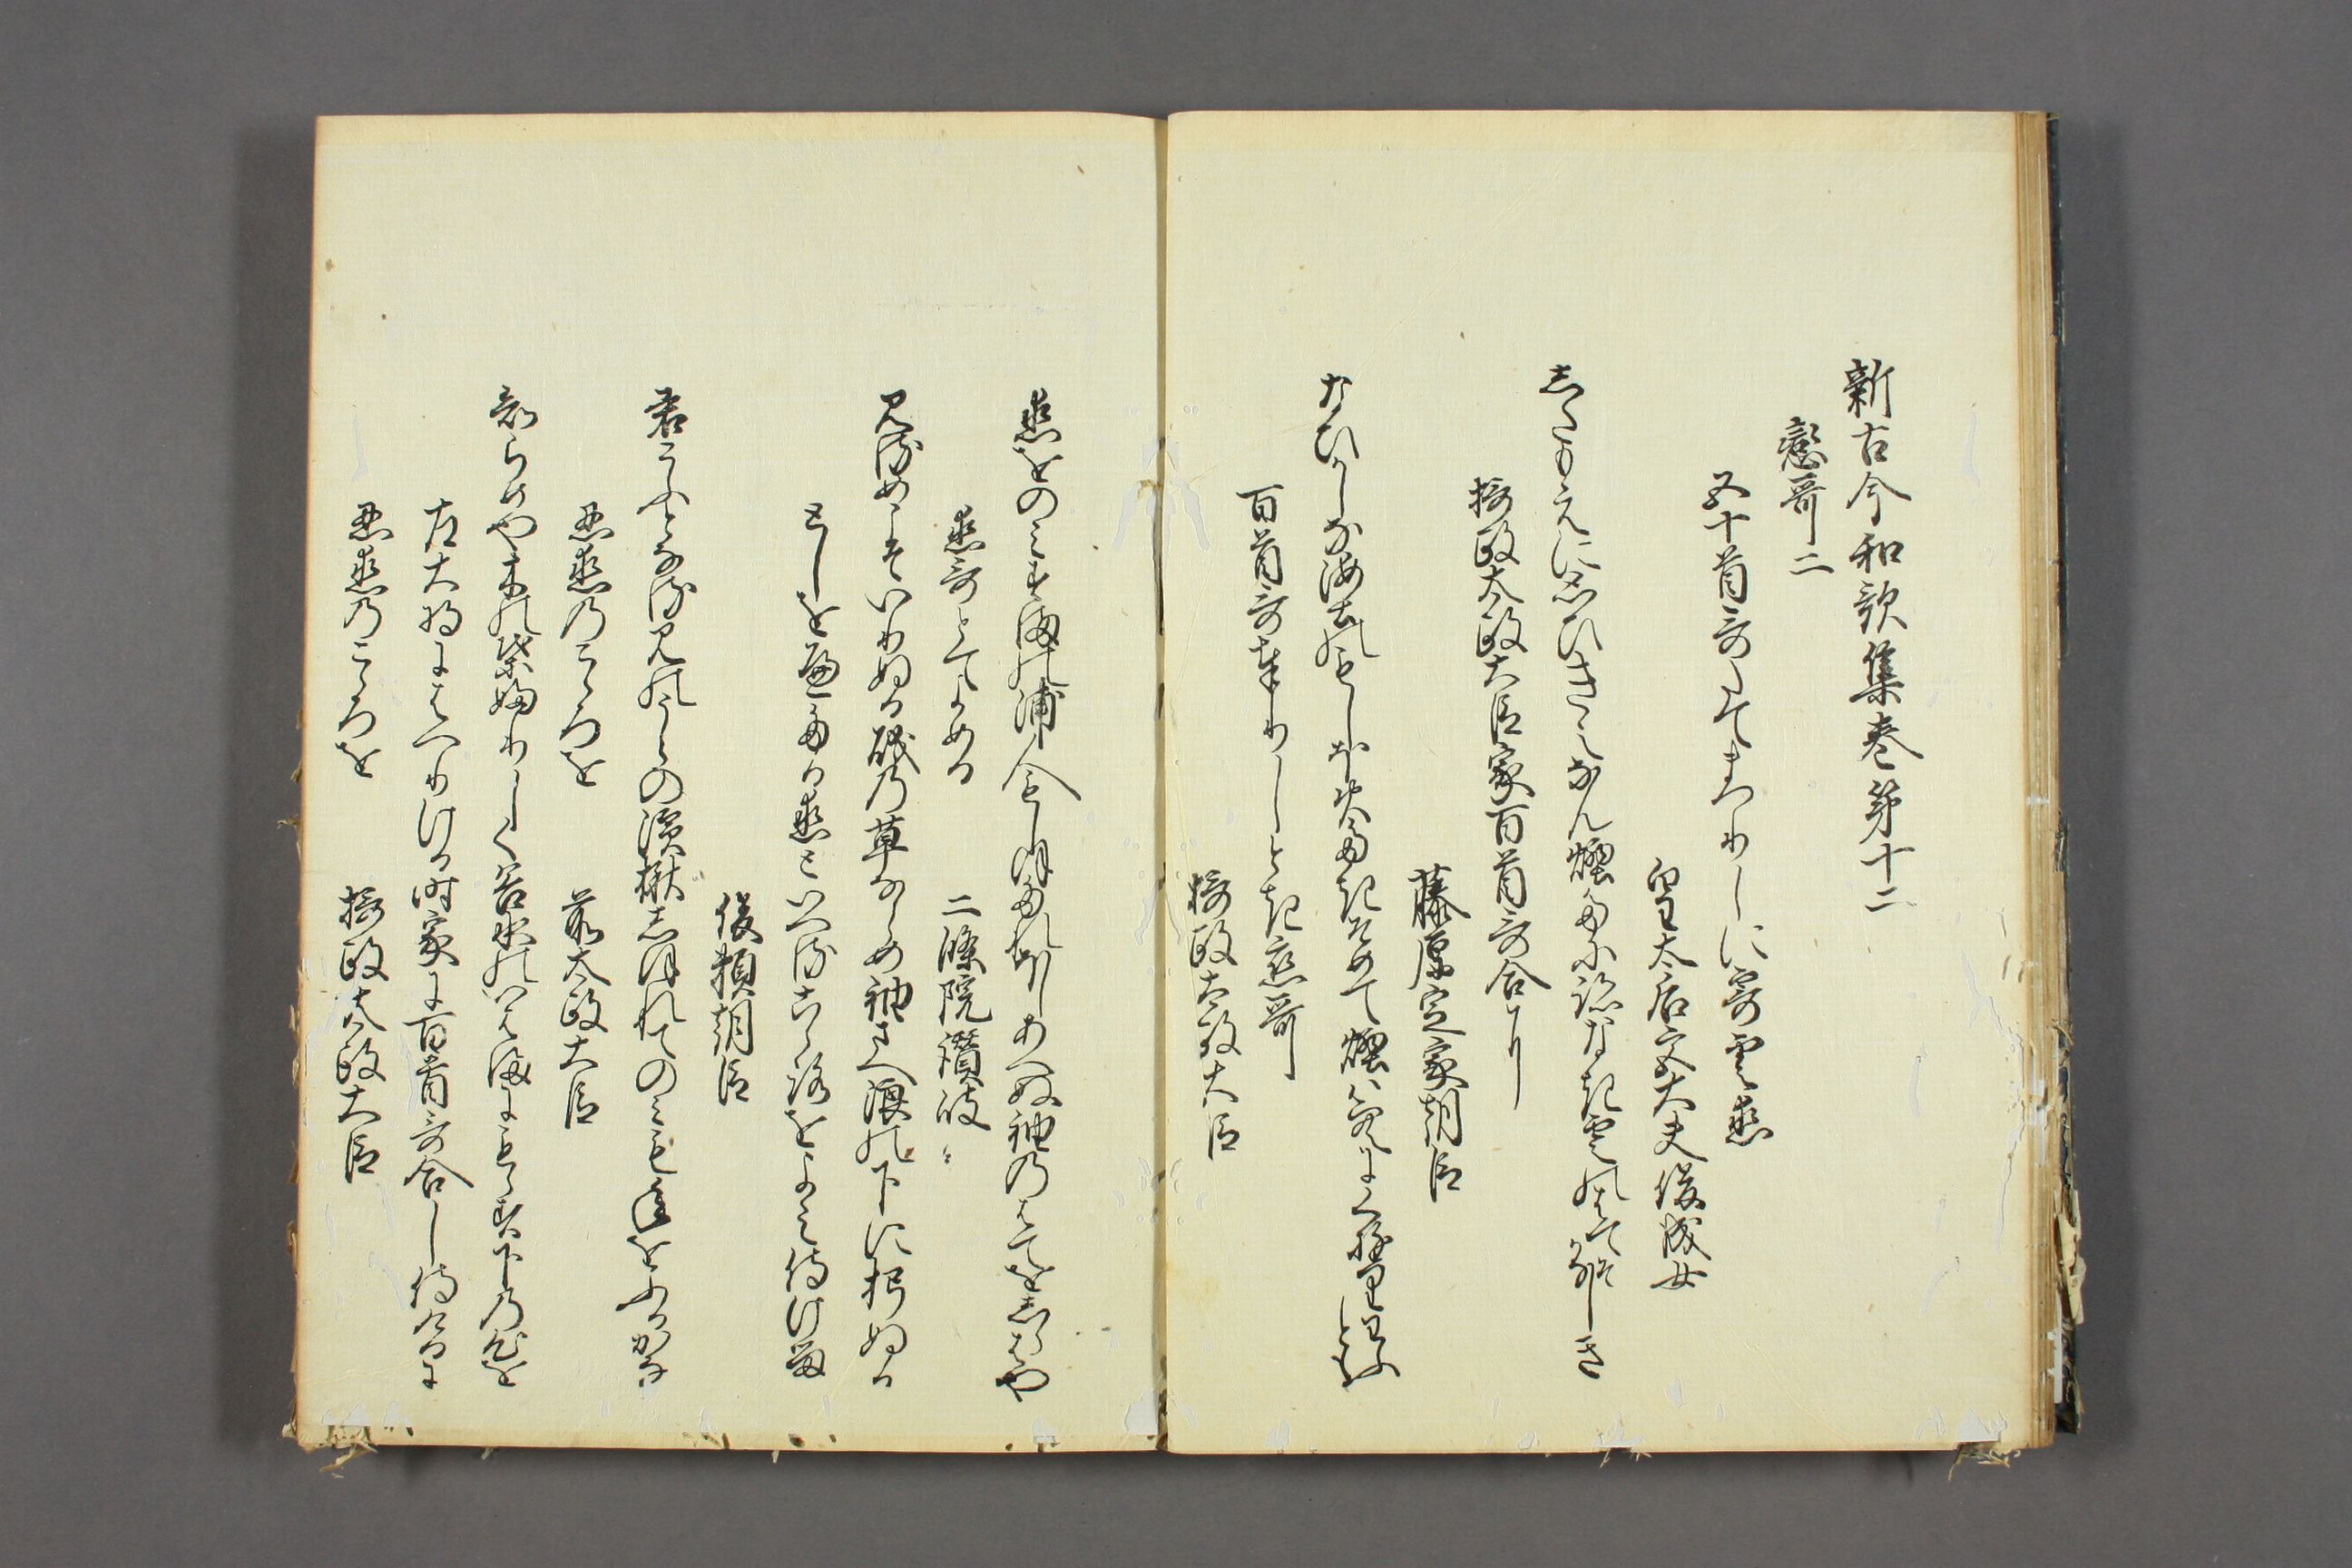 新古今和歌集巻第十二
戀哥二
五十首哥たてまつりしに寄雲恋
皇太后宮大夫俊成女
したもえに思ひきえなん煙たに跡なき雲のはてそかなしき
摂政太政大臣家百首哥合に
藤原定家朝臣
なひかしな海士のもしほ火たき初て煙は空にくゆりわふとも
百首哥奉りしとき恋哥
摂政太政大臣
恋をのみすまの浦人もしほたれほしあへぬ袖のはてをしらはや
恋哥とてよめる
二條院讃岐
見るめこそいりぬる礒の草ならめ袖さへ浪の下に朽ぬる
としを経たる恋といへるこゝろをよみ侍ける
俊頼朝臣
君こふとなるみの浦の濱楸しほれてのみも年をふるかな
忍恋のこゝろを
前太政大臣
知らめや木の葉ふりしく谷水のいはまにもらす下の心を
左大将にはへりける時家に百首哥合し侍けるに
忍恋のこころを
摂政太政大臣